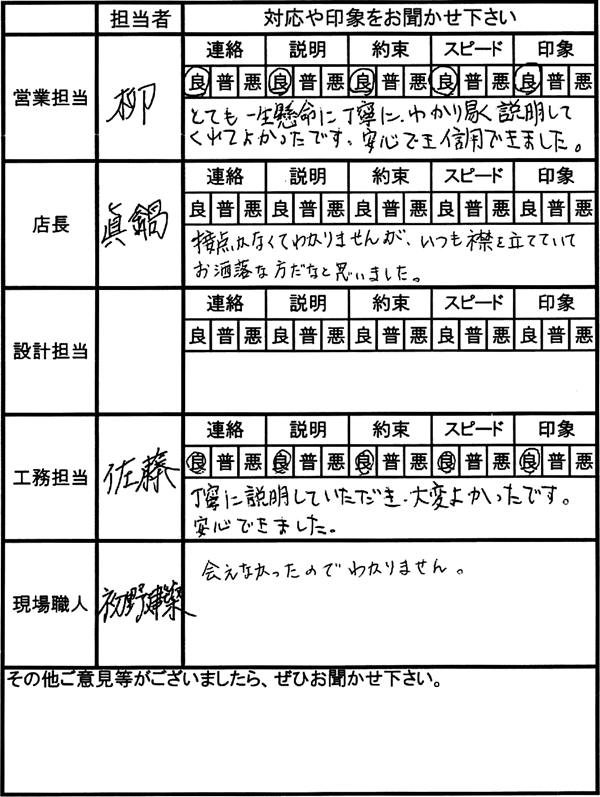 担当者 対応や印象をお聞かせ下さい
営業担当 柳
連絡 説明 約束 スピード 印象
良 普 悪 良 普 悪 良 普 悪 良 普 悪 良 普 悪
とても一生懸命に丁寧に、わかり易く説明して
くれてよかったです。安心でき信用できました。
店長 眞鍋
連絡 説明 約束 スピード 印象
良 普 悪 良 普 悪 良 普 悪 良 普 悪 良 普 悪
接点がなくてわかりませんが、いつも襟を立てていて
お洒落な方だなと思いました。
設計担当
連絡 説明 約束 スピード 印象
良 普 悪 良 普 悪 良 普 悪 良 普 悪 良 普 悪
工務担当 佐藤
連絡 説明 約束 スピード 印象
良 普 悪 良 普 悪 良 普 悪 良 普 悪 良 普 悪
丁寧に説明していただき、大変よかったです。
安心できました。
現場職人 初野建築
会えなかったのでわかりません。
その他ご意見等がございましたら、ぜひお聞かせ下さい。